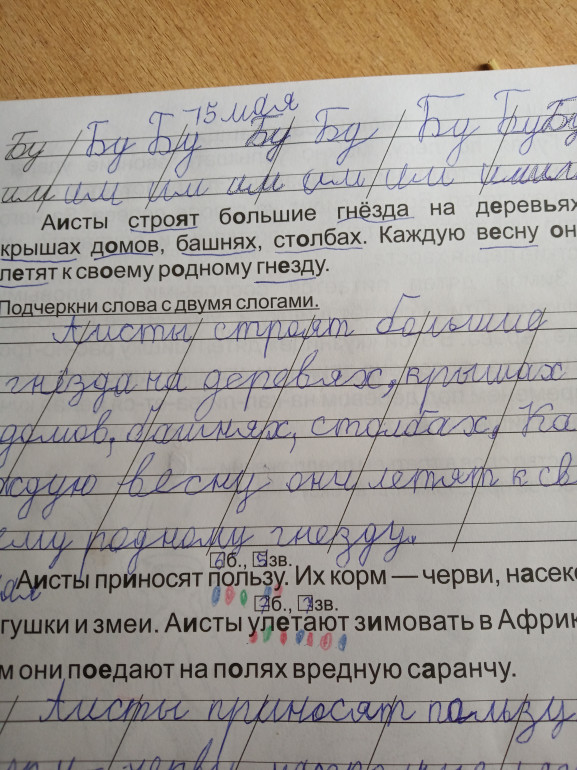 15 мая
Бу Бу Бу Бу Бу Бу Бу Бу
им им им им им им им
Аисты строят большие гнёзда на деревьях
крышах домов, башнях, столбах. Каждую весну он
летят к своему родному гнезду.
Подчеркни слова с двумя слогами.
Аисты строят большие
гнёзда на деревьях, крышах
домов, башнях, столбах. Ка
ждую весну они летят к св
ему родному гнезду.
6 б., 5 зв.
Аисты приносят пользу. Их корм — черви, насеко
7 б., 7 зв.
гушки и змеи. Аисты улетают зимовать в Африк
м они поедают на полях вредную саранчу.
Аисты приносят пользу